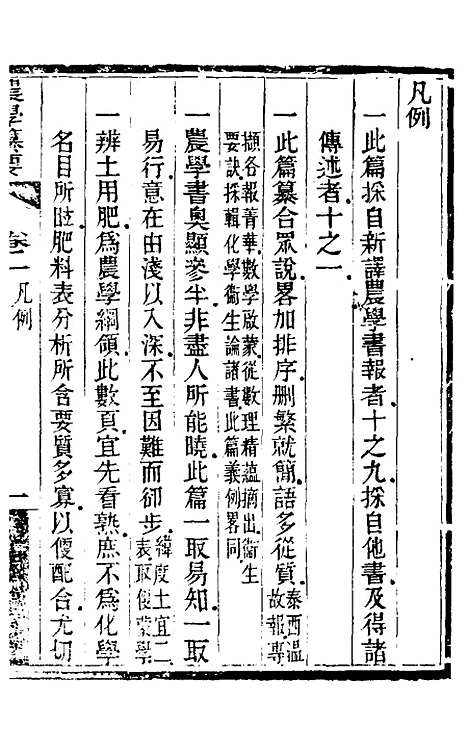 凡例
一此篇採自新譯農學書報者十之九採自他書及得諸
傳述者十之一
一此篇纂合眾說畧加排序刪繁就簡語多從質泰西溫故報專
擷各報菁華數學啟蒙從數理精蘊摘出衞生
要訣採輯化學衞生論諸書此篇義例畧同
一農學書奧顯參半非盡人所能曉此篇一取易知一取
易行意在由淺以入深不至因難而卻步緯度土宜二表取便蒙學
一辨土用肥爲農學綱領此數頁宜先看熟庶不爲化學
名目所眩肥料表分析所含要質多寡以便配合尤切
農學纂要
卷一
凡例
一